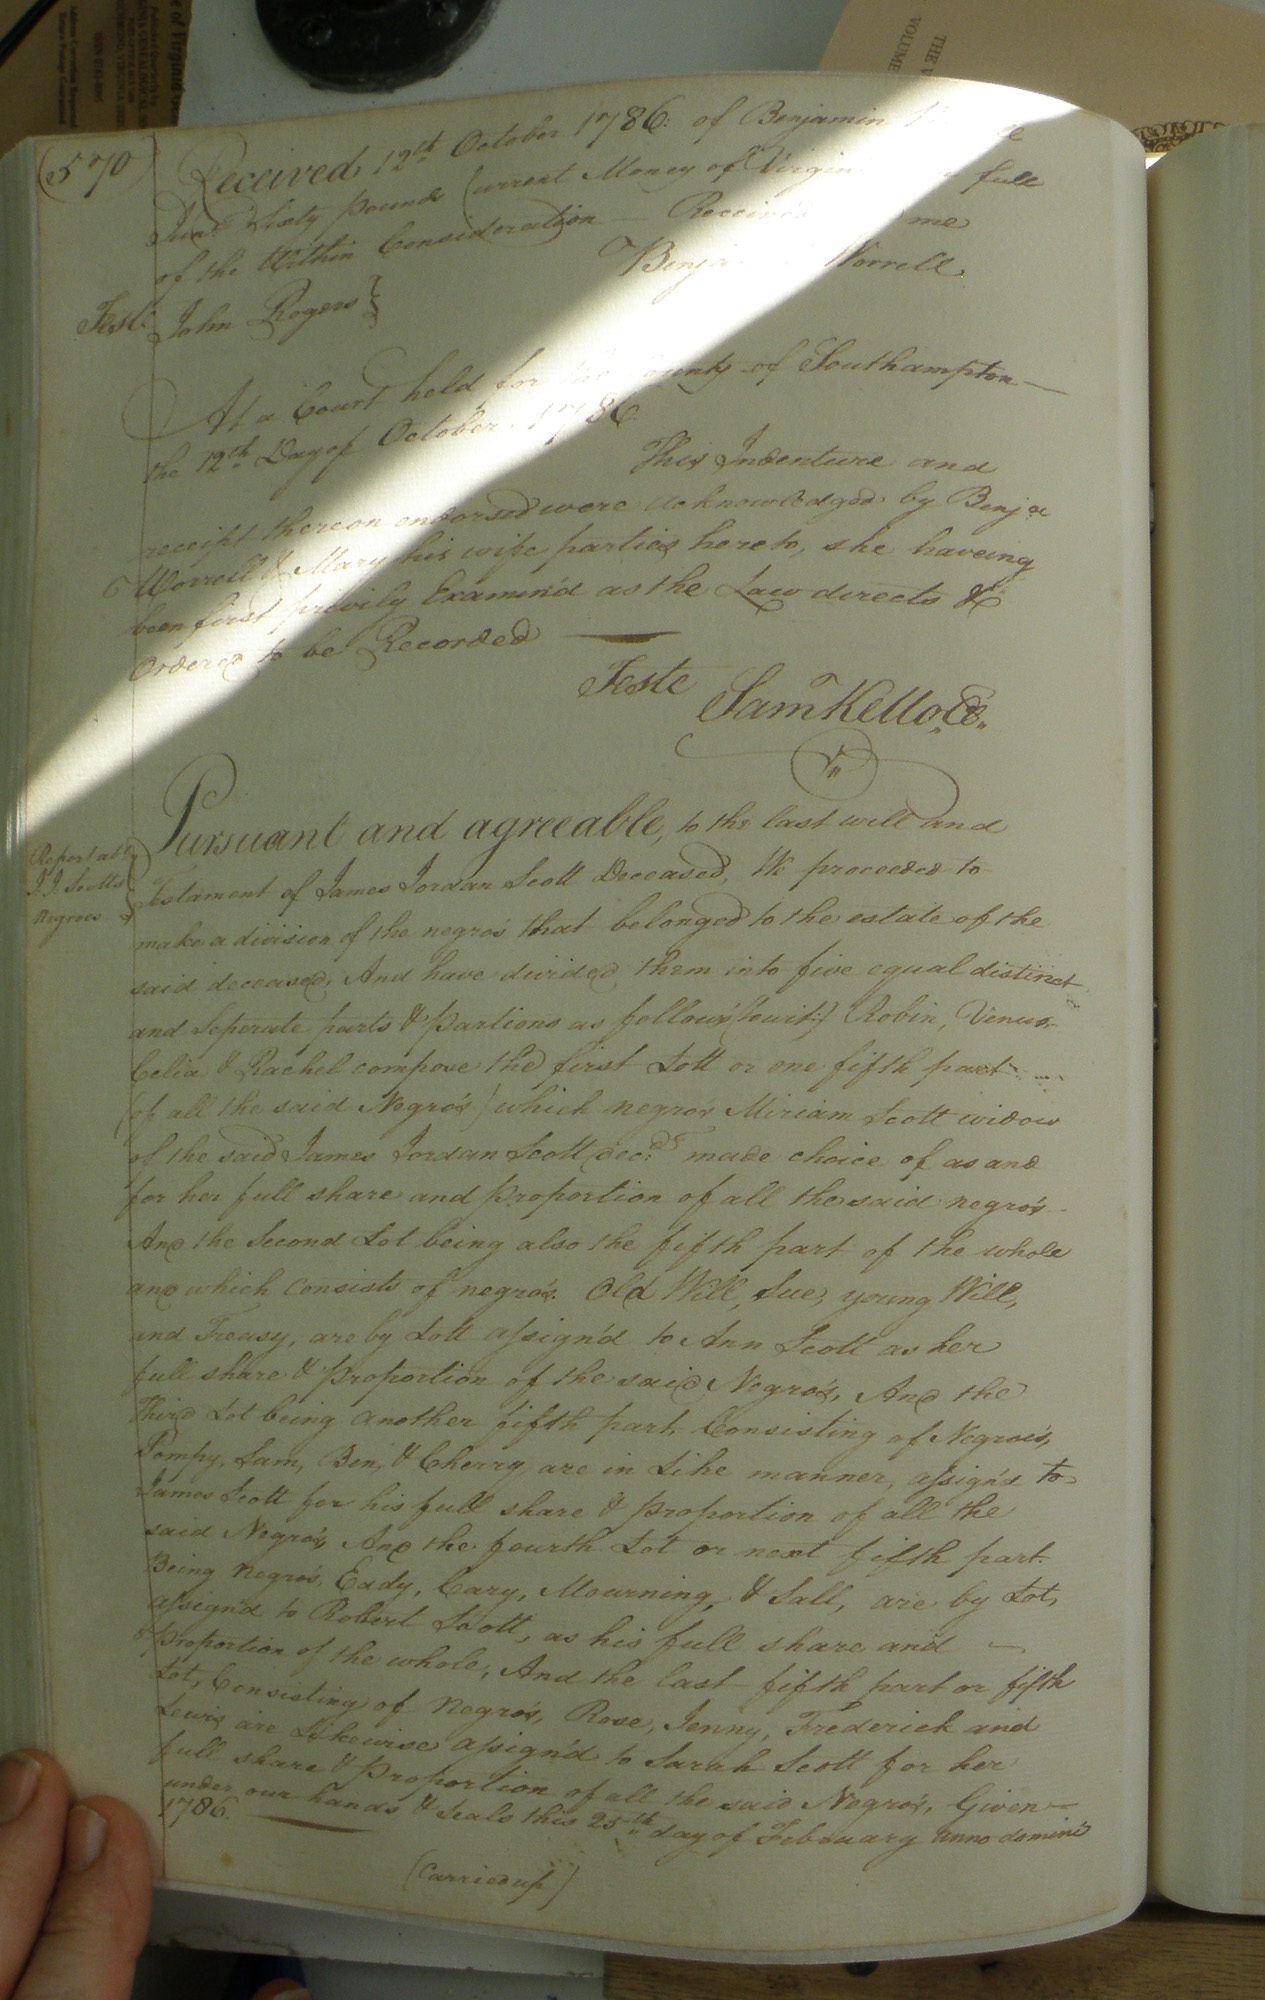 (570)
Received 12th October 1786: of Benjamin
Sixty Pounds Current Money of full
of the Within Consideration — me
Benja Worrell
Teste John Rogers }
At a Court held for the County of Southampton —
the 12th Day of October 1786
This Indenture and
receipt thereon endorsed were acknowledged by Benja
Worrell & Mary his wife parties hereto, she haveing
been first privily Examin'd as the Law directs &
Ordered to be Recorded —
Teste
Sam Kello, C
Pursuant and agreeable, to the last will and
Report all J. J. Scotts Negroes
Testament of James Jordan Scott Deceased, We proceeded to
make a division of the negro's that belonged to the estate of the
said deceased, And have divided them into five equal distinct
and Seperate parts & Partions as follows (towit:) Robin, Venus
Celia & Rachel compose the first Lott or one fifth part
(of all the said Negro's) which negro's Miriam Scott widow
of the said James Jordan Scott decd made choice of as and
for her full share and Proportion of all the said negro's —
And the Second Lot being also the fifth part of the whole
and which consists of negro's. Old Will, Sue, young Will,
and Treasy, are by Lott assign'd to Ann Scott as her
full share & Proportion of the said Negro's, And the
Third Lot being another fifth part, Consisting of Negroes,
Pompy, Sam, Ben, & Cherry, are in Like manner, assign'd to
James Scott for his full share & proportion of all the
said Negro's, And the fourth Lot or next fifth part.
Being negro's, Eady, Cary, Mourning, & Sall, are by Lot,
assign'd to Robert Scott, as his full share and —
Proportion of the whole, And the last fifth part or fifth
Lot, Consisting of Negro's, Rose, Jenny, Frederick and
Lewis are Likewise assign'd to Sarah Scott for her
full share & Proportion of all the said Negro's, Given —
under our hands & Seals this 25th day of February anno domini
1786. —
(Carried up)